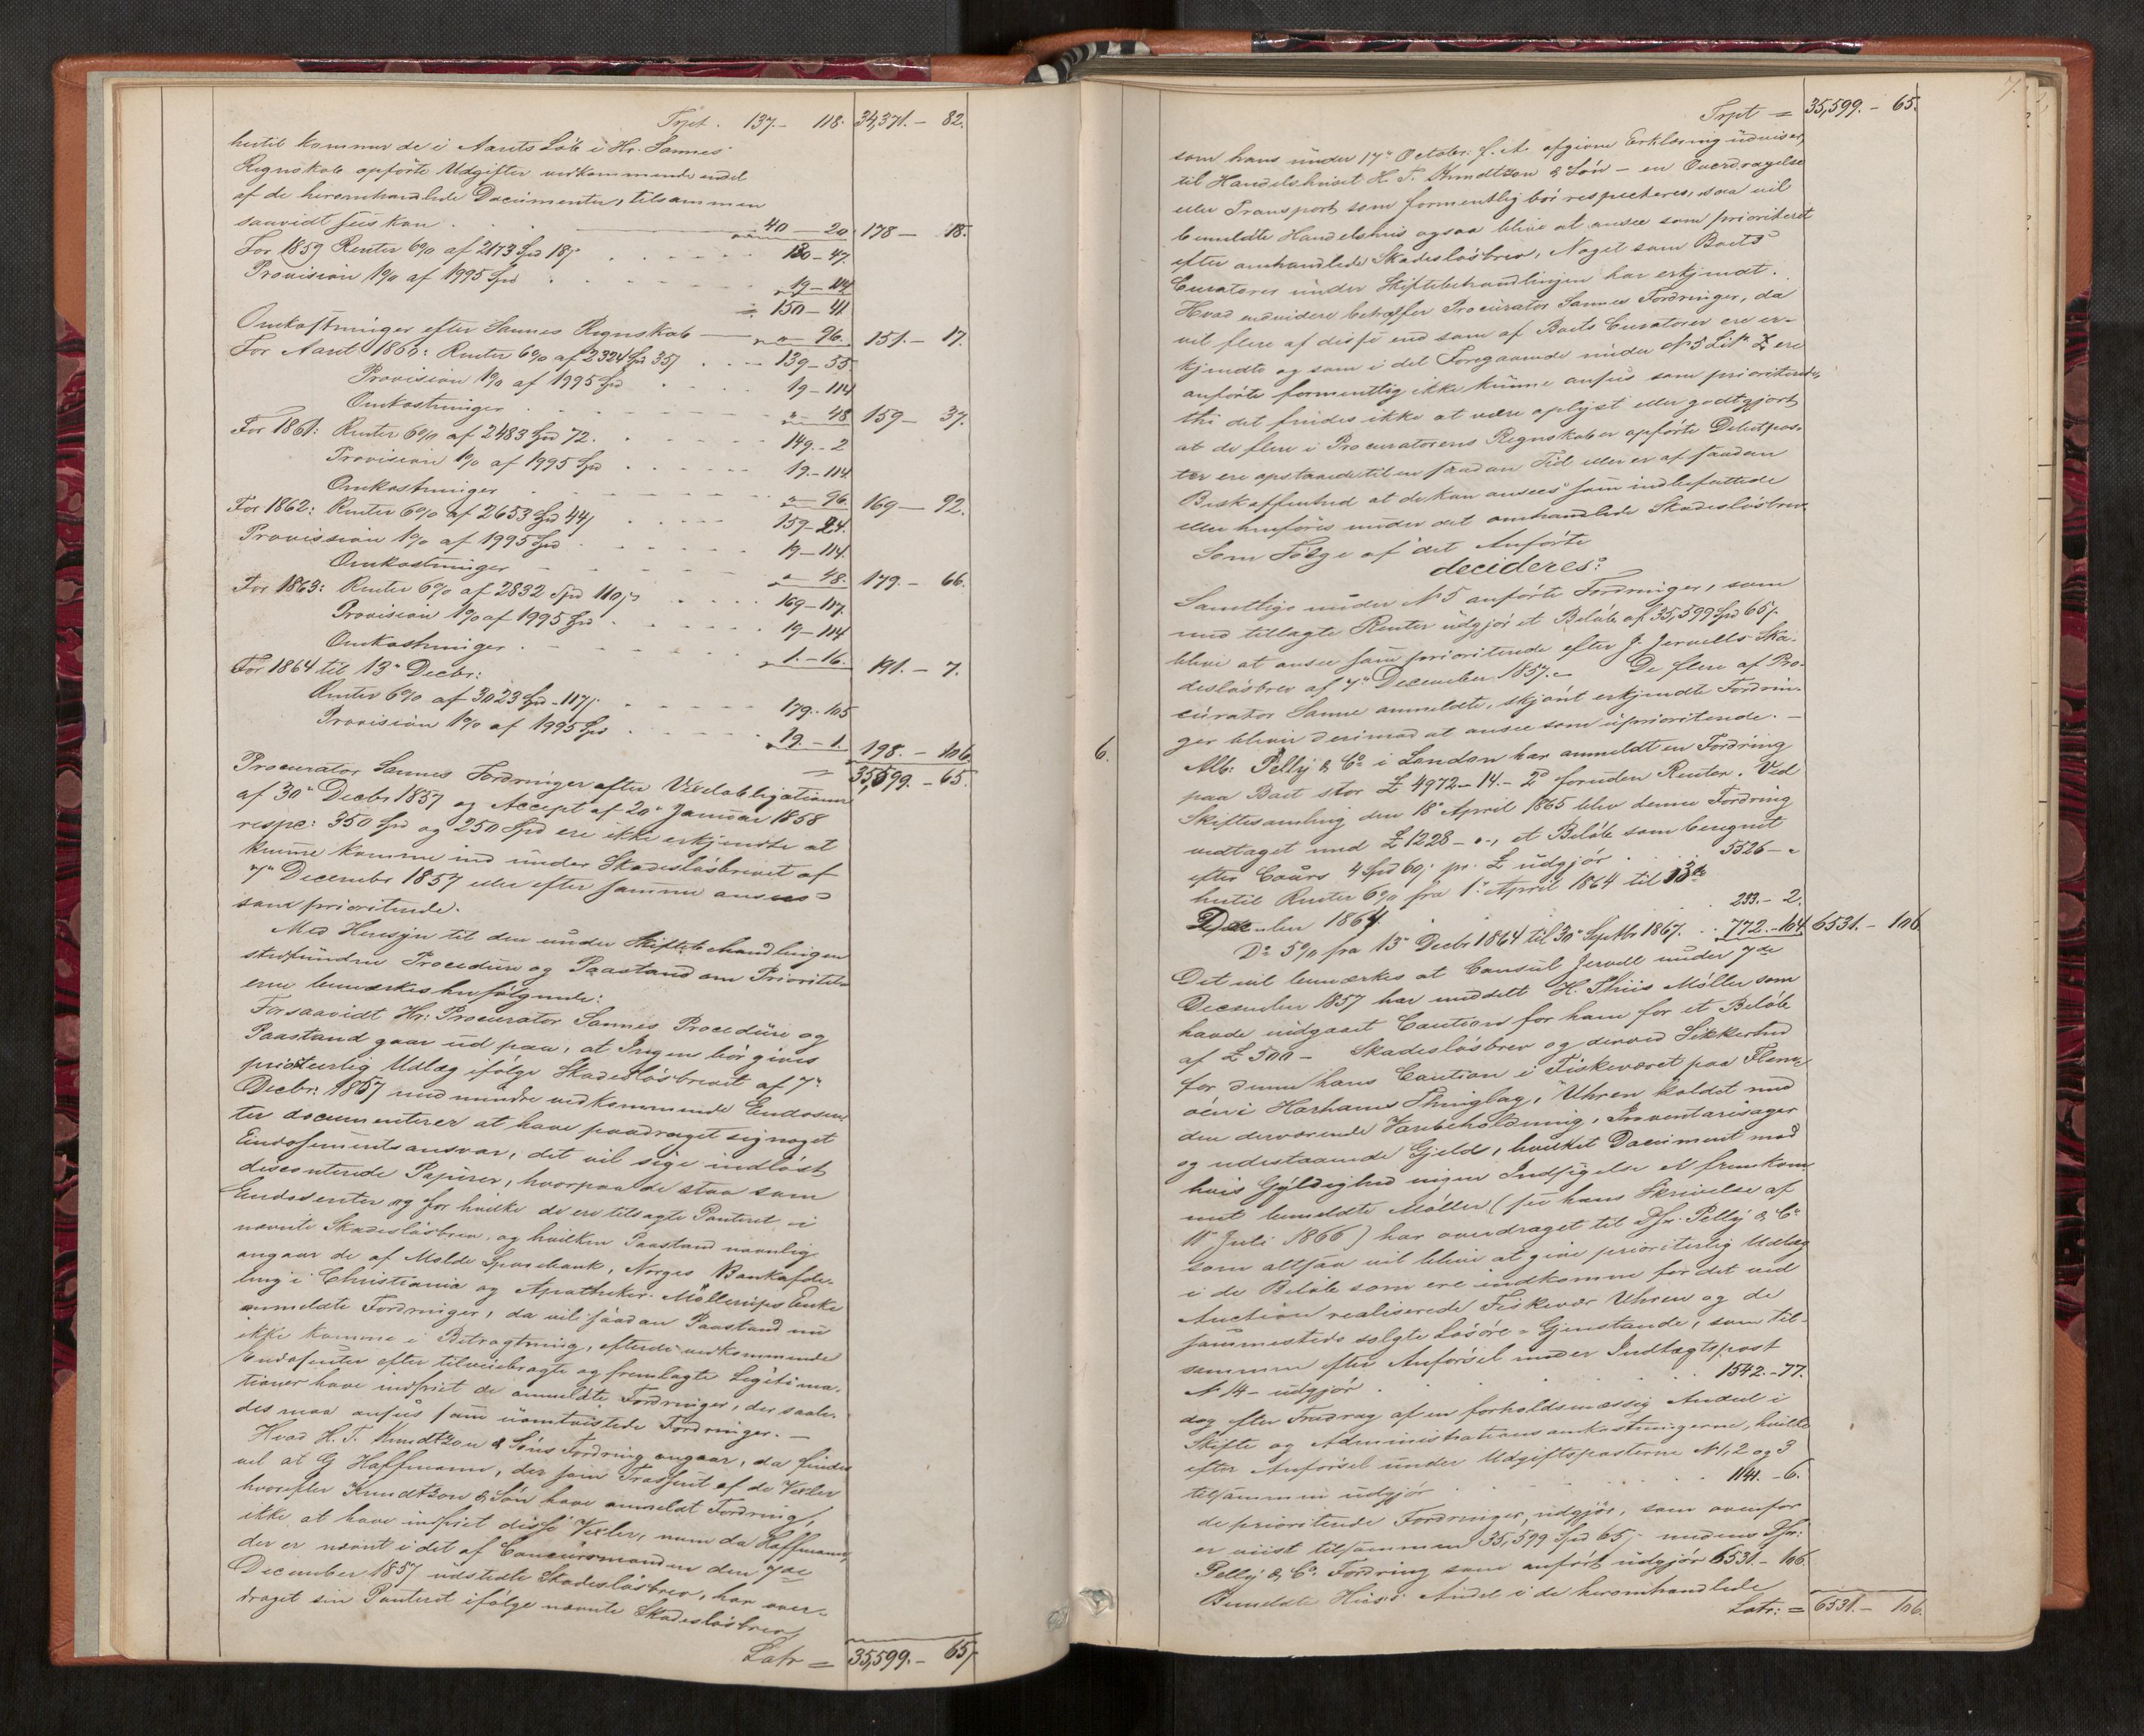 Trpt. 137.- 118. 34,371.- 82.
hertil kommer de i Aarets Løb i Hr. Sannes
Regnskab opførte Udgifter vedkommende endel
af de heromhandlede Documenter, tilsammen
saavidt sees kan . 40 — 20. 178 — 18.
For 1859 Renter 6% af 2173 Spd 18/ 130 - 47.
Provision 1% af 1995 Spd 19 - 114
= 150 - 41
Omkostninger efter Sannes Regnskab — " - 96. 151. - 17.
For Aaret 1860: Renter 6% af 2324 Spd 35/ 139 - 55
Provision 1% af 1995 Spd 19 - 114
Omkostninger " - 48 159 - 37.
For 1861: Renter 6% af 2483 Spd 72. 149. - 2
Provision 1% af 1995 Spd 19. - 114
Omkostninger " - 96. 169 — 92.
For 1862: Renter 6% af 2653 Spd 44/ 159 - 24.
Provission 1% af 1995 Spd 19 - 114.
Omkostninger " - 48. 179. - 66.
For 1863: Renter 6% af 2832 Spd 110/ 169 - 117.
Provision 1% af 1995 Spd 19 - 114
Omkostninger 1. - 16. 191. - 7.
For 1864 til 13de Decbr:
Renter 6% af 3023 Spd - 117/. 179. - 105
Provision 1% af 1995 Spd 19. - 1. 198. - 106.
= 35,599. - 65.
Procurator Sannes Fordringer efter Vexelobligationen
af 30te Decbr 1857 og Accept af 20de Januar 1858
respc: 350 Spd og 250 Spd ere ikke erkjendte at
kunne komme ind under Skadesløsbrevet af
7de Decembr 1857 eller efter samme ansees
som prioriterede.
Med Hensyn til den under Skiftebehandlingen
stedfundne Procedure og Paastand om Prioritets
erne bemærkes herfølgende:
Forsaavidt Hr: Procurator Sannes Procedure og
Paastand gaar ud paa, at Ingen bør gives
prioriterlig Udlæg ifølge Skadesløsbrevet af 7de
Decbr: 1857 med mindre vedkommende Endossen
ter documenterer at have paadraget sig noget
Endossementsansvar, det vil sige indløst
disconterede Papirer, hvorpaa de staa som
Endosenter og for hvilke de ere tilsagte Panteret i
nævnte Skadesløsbrev, og hvilken Paastand navnlig
angaar de af Molde Sparebank, Norges Bankafde-
ling i Christiania og Apotheker Møllerups Enke
anmeldte Fordringer, da vil saadan Paastand nu
ikke komme i Betragtning, efterdi vedkommende
Endosenter efter tilveiebragte og fremlagte Legitima-
tioner have indfriet de anmeldte Fordringer, der saale-
des maa ansees som uomtvistede Fordringer. —
Hvad H. T. Knudtzon & Søns Fordring angaar, da findes
vel at G Haffmann, der som Trassent af de Vexler
hvorefter Knudtzon & Søn have anmeldt Fordring,
ikke at have indfriet disse Vexler, men da Haffmann,
der er nævnt i det af Concursmanden den 7de
December 1857 udstedte Skadesløsbrev, har over-
draget sin Panteret ifølge nævnte Skadesløsbrev,
Latr = 35,599. - 65/
7.
Trpt = 35,599. - 65.
som hans under 17de October f. A. afgivne Erklæring udviser,
til Handelshuset H. T. Knudtzon & Søn - en Overdragelse
eller Transport som formentlig bør respecteres, saa vil
bemeldte Handelshuus ogsaa blive at ansee som prioriteret
efter omhandlede Skadesløsbrev, Noget som Boets
Curatorer under Skiftebehandlingen har erkjendt.
Hvad endvidere betræffer Procurator Sannes Fordringer, da
vil flere af disse end som af Boets Curatorer ere er-
kjendte og som i det Foregaaende under No 5 Litr Z ere
anførte formentlig ikke kunne ansees som prioriterede,
thi det findes ikke at være oplyst eller godtgjort
at de flere i Procuratorens Regnskaber opførte Debetpos-
ter ere opstaaede til en saadan Tid eller er af saadan
Beskaffenhed at de kan ansees som indbefattede
eller henføres under det omhandlede Skadesløsbrev.
Som Følge af det Anførte
decideres:
Samtlige under No 5 anførte Fordringer, som
med tillagte Renter udgjør et Beløb af 35,599 Spd 65/.
blive at ansee som prioriterede efter J Jervells Ska-
desløsbrev af 7de December 1857. — De flere af Pro-
curator Sanne anmeldte, skjønt erkjendte Fordrin-
ger bliver derimod at ansee som uprioriterede. —
6. Alb: Pelly & Co i London har anmeldt en Fordring
paa Boet stor £ 4972 - 14. - 2d foruden Renter. Ved
Skiftesamling den 18de April 1865 blev denne Fordring
vedtaget med £ 1228 - " -, et Beløb som beregnet
efter Cours 4 Spd 60/. pr. £ udgjør 5526 - "
hertil Renter 6% fra 1ste April 1864 til 13de
December 1864. 233. - 2.
Do 5% fra 13de Decbr 1864 til 30te Septbr 1867. 772. - 104 6531. - 106
Det vil bemærkes at Consul Jervell under 7de
December 1857 har meddelt H. Thiis Møller som
havde indgaaet Caution for ham for et Beløb
af £ 500 - Skadesløsbrev og derved Sikkerhed
for denne hans Caution i Fiskeværet paa Flem-
øen i Harhams Thinglag, Uhren kaldet med
den derværende Varebeholdning, Inventariesager
og udestaaende Gjeld, hvilket Document mod
hvis Gyldighed ingen Indsigelse er fremkom
met bemeldte Møller (see hans Skrivelse af
11te Juli 1866) har overdraget til Dhr. Pelly & Co
som altsaa vil blive at give prioriterlig Udlæg
i de Beløb som ere indkomne for det ved
Auction realiserede Fiskevær Uhren og de
sammesteds solgte Løsøre-Gjenstande, som til-
sammen efter Anførsel under Indtægtspost
No 14 - udgjør 1542. - 77.
dog efter Fradrag af en forholdsmæssig Andeel i
Skifte og Administrationsomkostningerne, hvilke
efter Anførsel under Udgiftsposterne No 1, 2 og 3
tilsammen udgjør 1141. - 6.
de prioriterede Fordringer, udgjør, som ovenfor
er viist tilsammen 35,599 Spd 65/- medens Dhr:
Pelly & Co. Fordring som anført udgjør 6531. - 106.
Bemeldte Huses Andel i de heromhandlede
Latr: = 6531. - 106.